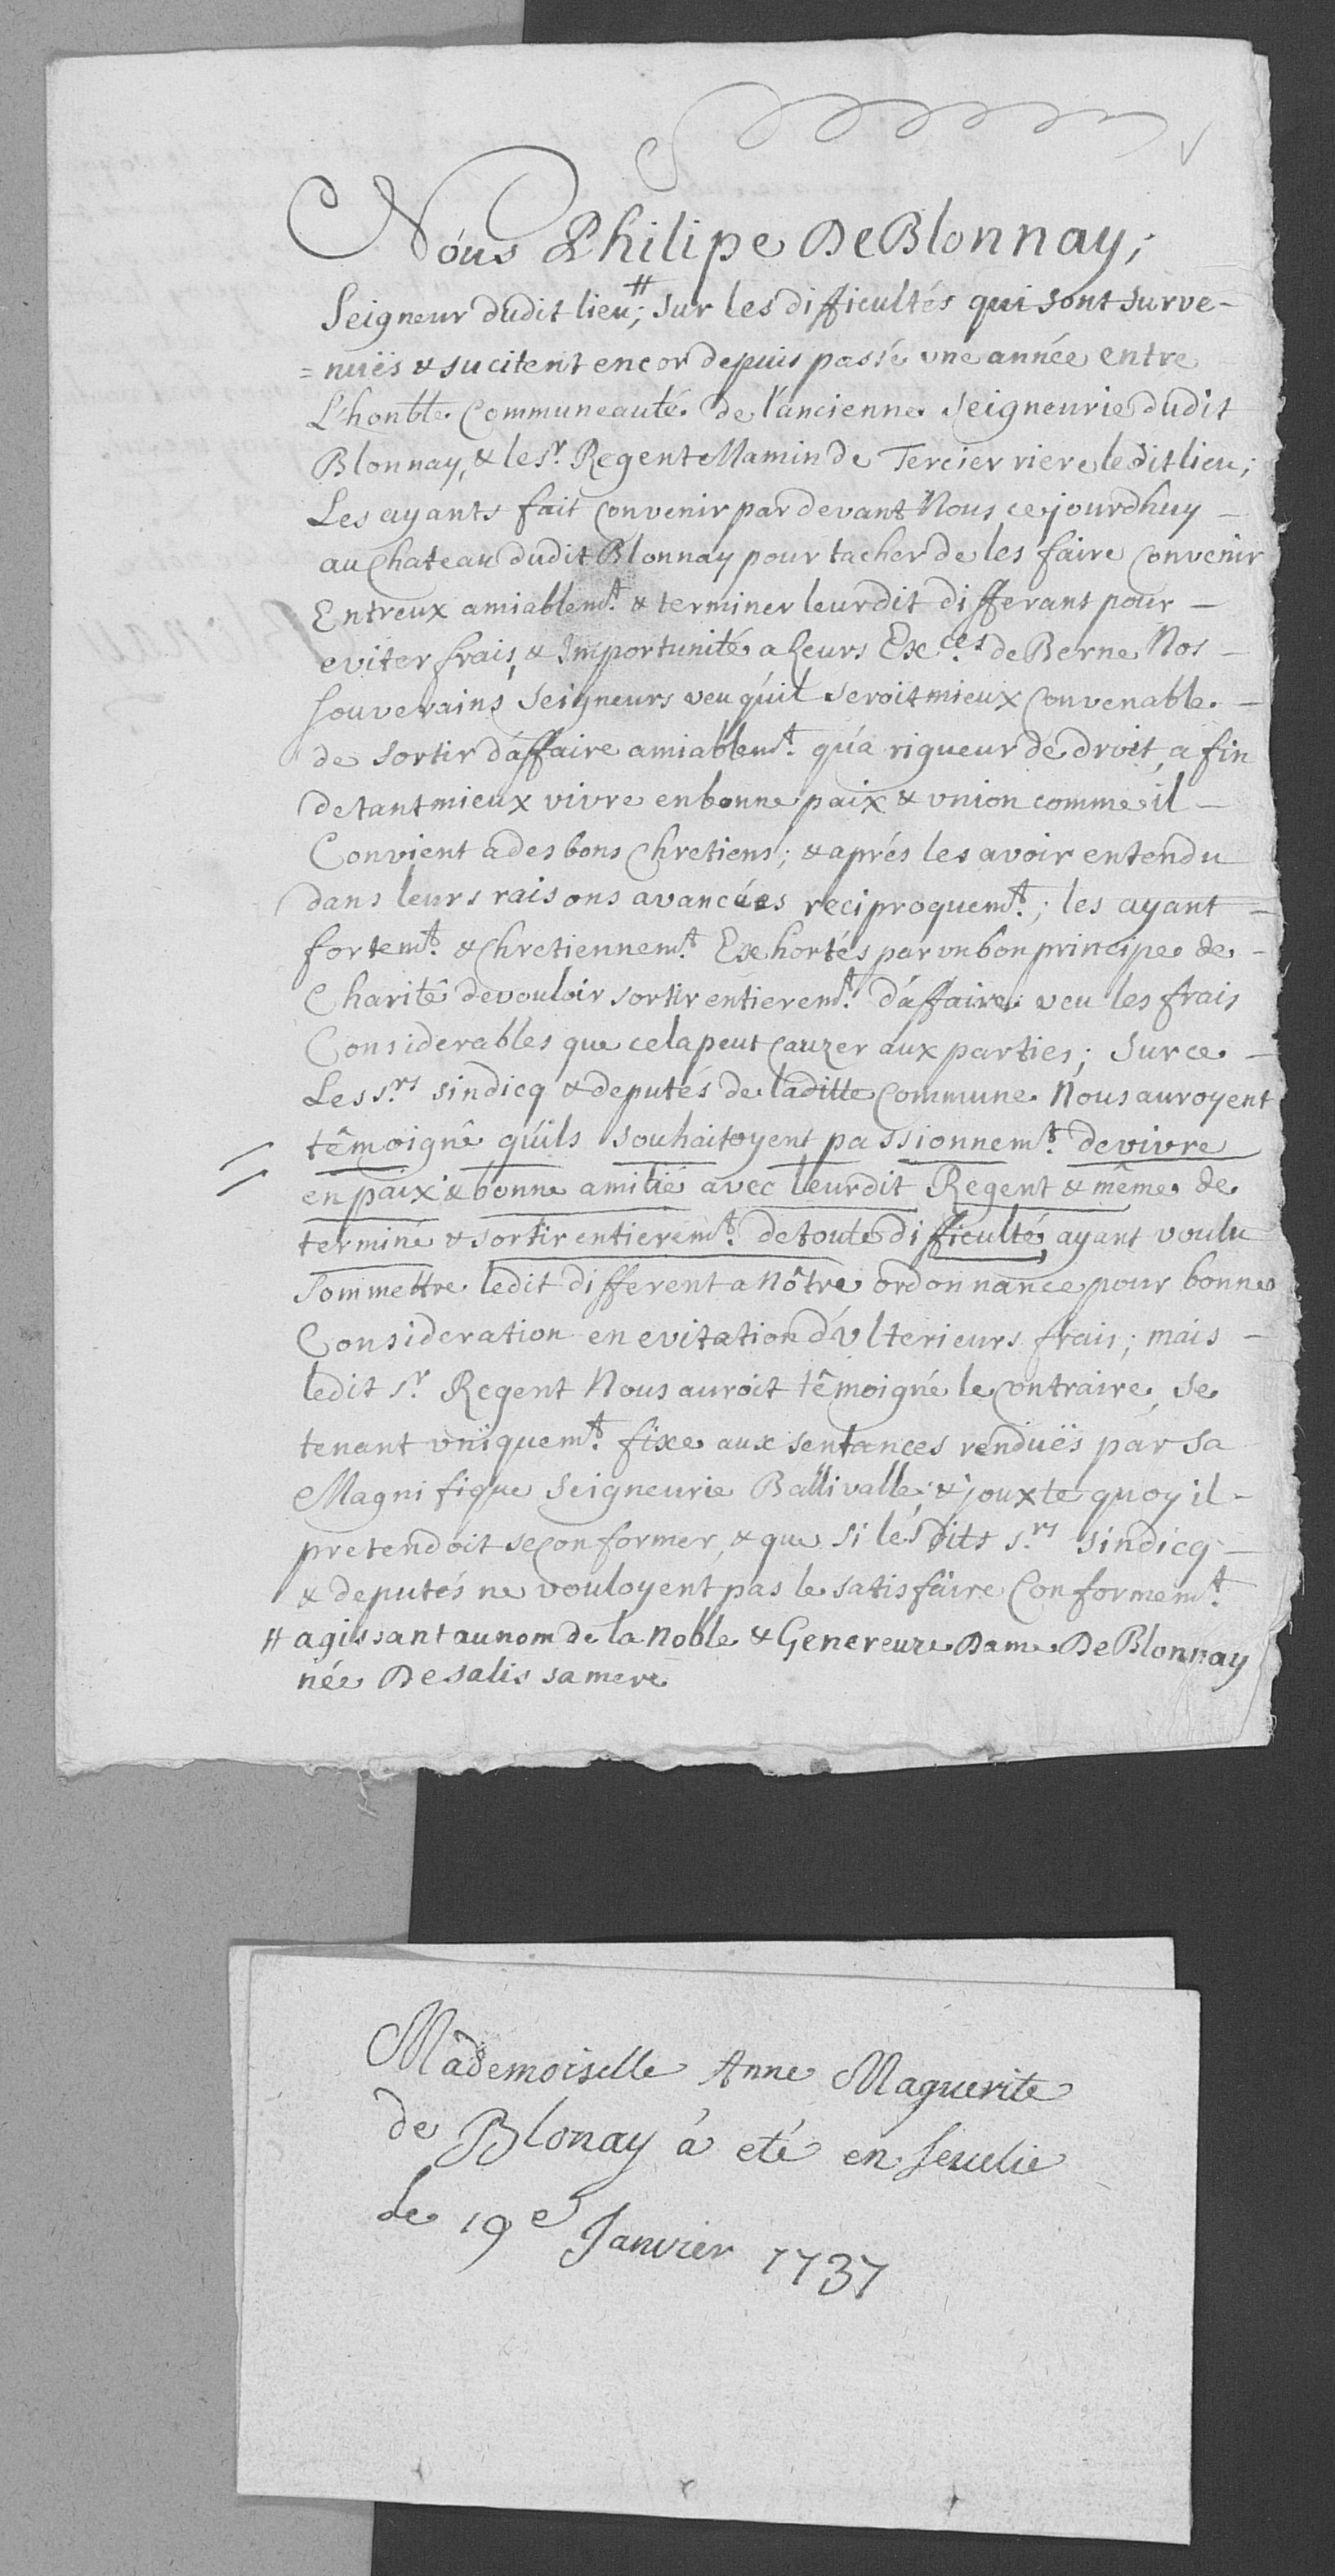 Nous Philipe De Blonnay;
Seigneur dudit lieu;# sur les difficultés qui sont surve-
=nuës & sucitent encor depuis passé une année entre
L'honble. Communeauté de l'ancienne Seigneurie dudit
Blonnay, & le Sr. Regent Mamin de Tercier riere ledit lieu;
Les ayants fait convenir par devant Nous cejourdhuy -
au Chateau dudit Blonnay pour tacher de les faire Convenir
Entreux amiablemt. & terminer leurdit differant pour -
eviter frais, & Importunité a Leurs Exces. de Berne Nos -
souverains Seigneurs veu qu'il seroit mieux Convenable. -
de sortir d'affaire amiablemt. qu'a rigueur de droit, a fin
de tant mieux vivre en bonne paix & vnion comme il -
Convient a des bons Chretiens; & aprés les avoir entendu
dans leurs raisons avancées reciproquemt.; les ayant =
fortemt. & Chretiennemt. Exhortés par un bon principe de -
Charité de vouloir sortir entieremt. d'affaire veu les frais
Considerables que cela peut Cauzer aux parties; Sur ce. -
Les Srs. sindicq & deputés de laditte Commune Nous auroyent
têmoigné qu'ils souhaitoyent passionnemt. de vivre
en paix & bonne amitié avec leurdit Regent & même de
terminé & sortir entieremt. de toute difficulté, ayant voulu
Sommettre ledit different a Nôtre ordonnance pour bonne
Consideration en evitation d'vlterieurs frais; mais -
ledit Sr. Regent Nous auroit têmoigné le contraire, se
tenant vniquemt. fixe aux sentances renduës par sa
Magnifique Seigneurie Ballivalle; & jouxte quoy il -
pretendoit se conformer, & que si lesdits Srs. sindicq -
& deputés ne vouloyent pas le satisfaire Conformemt.
# agissant au nom de la Noble & Genereuze Dame De Blonnay
née Desalis sa mere
Mademoiselle Anne Maguerite
de Blonay à eté en
le 19e Janvier 1737